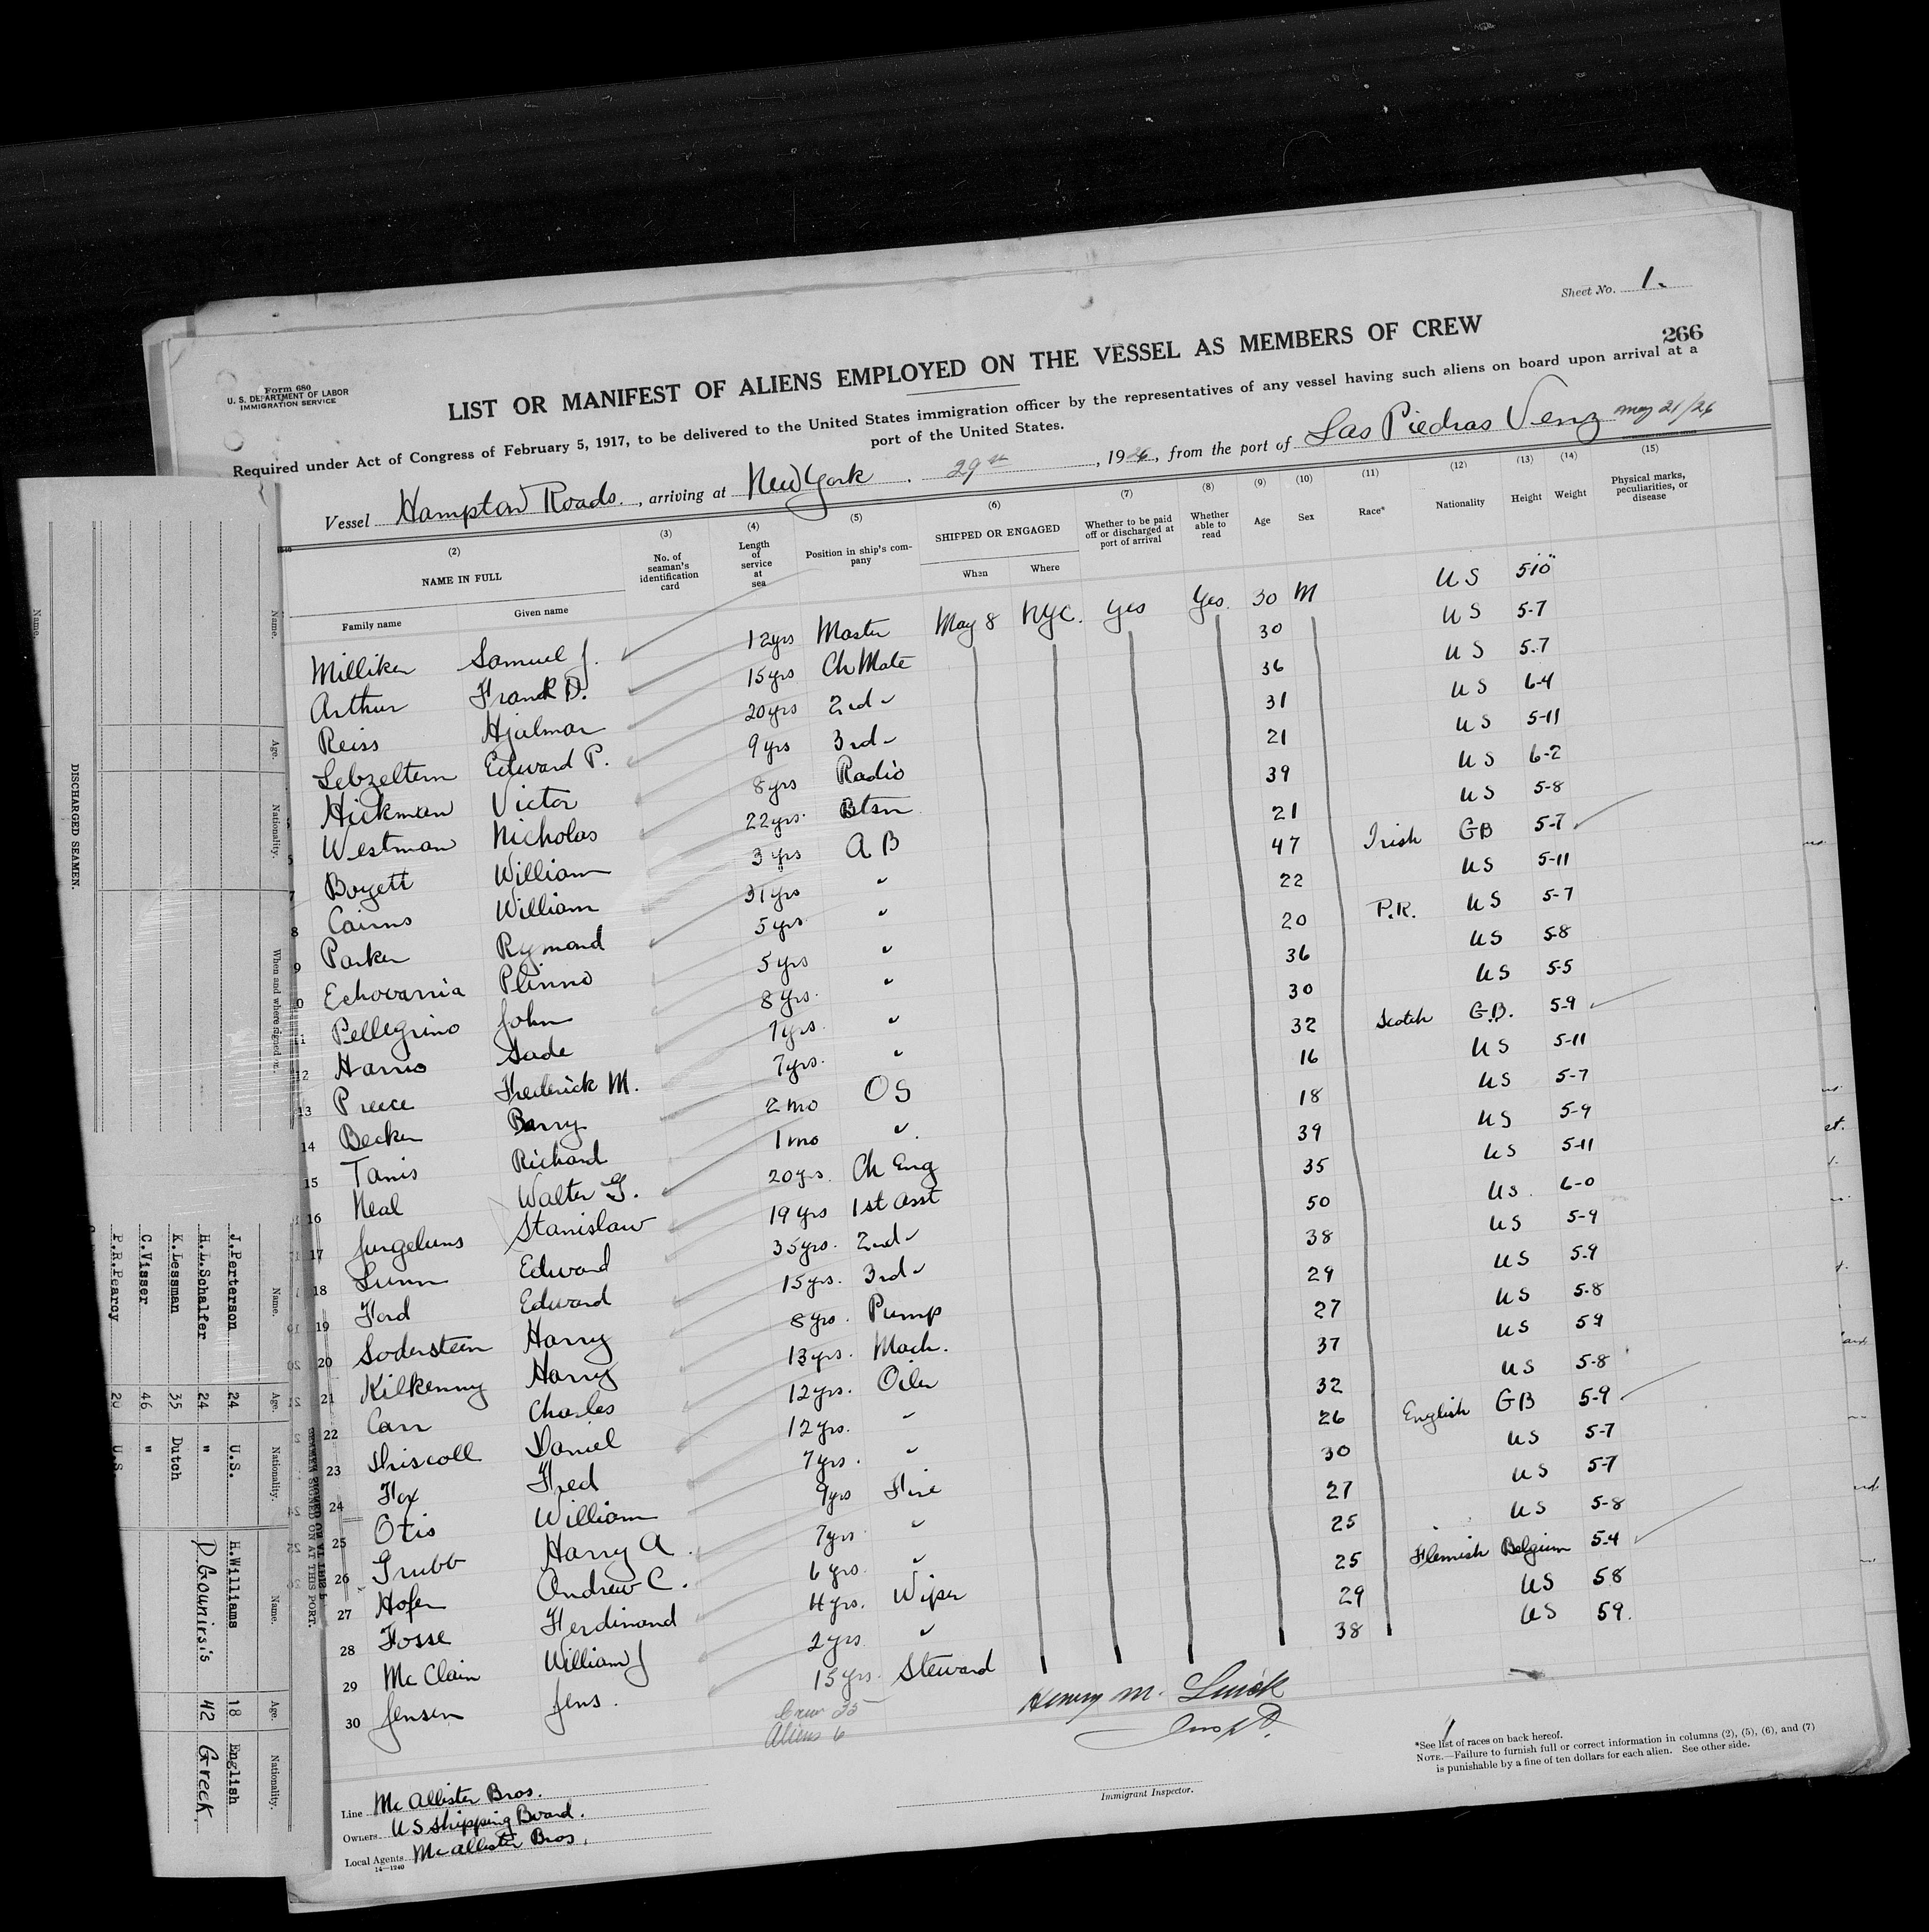 Sheet No. 1.
266
Form 680
U. S. DEPARTMENT OF LABOR
IMMIGRATION SERVICE
LIST OR MANIFEST OF ALIENS EMPLOYED ON THE VESSEL AS MEMBERS OF CREW
Required under Act of Congress of February 5, 1917, to be delivered to the United States immigration officer by the representatives of any vessel having such aliens on board upon arrival at a
port of the United States.
Vessel Hampton Roads., arriving at New York. 29th, 1926, from the port of Las Piedras Venz May 21/26
(2) (3) (4) (5) (6) (7) (8) (9) (10) (11) (12) (13) (14) (15)
NAME IN FULL
Family name Given name
No. of seaman's identification card
Length of service at sea
Position in ship's company
SHIPPED OR ENGAGED
When Where
Whether to be paid off or discharged at port of arrival
Whether able to read
Age Sex Race* Nationality Height Weight
Physical marks, peculiarities, or disease
Milliken Samuel J. 12yrs Master May 8 NYC. Yes Yes. 30 M US 510"
Arthur Frank D. 15yrs Ch Mate 30 US 5-7
Reiss Hjalmar 20yrs 2nd " 36 US 5-7
Lebzeltern Edward P. 9yrs 3rd " 31 US 6-4
Hickman Victor 8yrs Radio 21 US 5-11
Westman Nicholas 22yrs. Btsn 39 US 6-2
7 Boyett William 3yrs AB 21 US 5-8
8 Cairns William 31yrs " 47 Irish GB 5-7
9 Parker Rymond 5yrs " 22 US 5-11
0 Echovarria Plinno 5yrs " 20 P.R. US 5-7
11 Pellegrino John 8yrs. " 36 US 58
12 Harris Sade 7yrs. " 30 US 5-5
13 Preece Frederick M. 7yrs. " 32 Scotch G.B. 5-9
14 Becker Barry 2mo OS 16 US 5-11
15 Tanis Richard 1mo " 18 US 5-7
16 Neal Walter G. 20yrs. Ch Eng 39 US 5-9
17 Jurgeluns Stanislaw 19yrs 1st Asst 35 US 5-11
18 Lunn Edward 35yrs. 2nd " 50 US. 6-0
19 Ford Edward 15yrs. 3rd " 38 US 5-9
20 Sodersteen Harry 8yrs. Pump 29 US 5-9
21 Kilkenny Harry 13yrs. Mach. 27 US 5-8
22 Carr Charles 12yrs. Oiler 37 US 59
23 Driscoll Daniel 12yrs. " 32 US 5-8
24 Fox Fred 7yrs. " 26 English GB 5-9
25 Otis William 9yrs Fire 30 US 5-7
26 Grubb Harry A. 7yrs " 27 US 5-7
27 Hofer Andrew C. 6yrs. " 25 US 5-8
28 Fosse Ferdinand 4yrs. Wiper 25 Flemish Belgium 5-4
29 McClain William J 2yrs " 29 US 58
30 Jensen Jens. 15yrs. Steward 38 US 59.
Crew 35
Aliens 6
Henry M.
Insp
Immigrant Inspector.
Line McAllister Bros.
Owners US Shipping Board.
Local Agents McAllister Bros.
14—1940
*See list of races on back hereof.
NOTE.—Failure to furnish full or correct information in columns (2), (5), (6), and (7)
is punishable by a fine of ten dollars for each alien. See other side.
DISCHARGED SEAMEN.
Name. Age. Nationality. When and where signed on.
SEAMEN SIGNED ON AT THIS PORT.
Name. Age. Nationality. Name. Age. Nationality.
J.Perterson 24 U.S. H.Williams 18 English
H.L.Schalfer 24 " D. Gounirsis 42 Greek.
K.Lessman 35 Dutch
C.Visser 46 "
P.R.Pearcy 20 U.S.